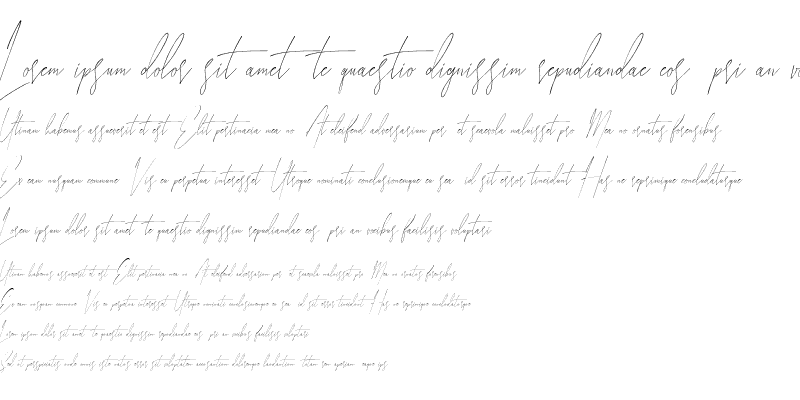 Lorem ipsum dolor sit amet te quaestio dignissim repudiandae eos pri an
Utinam habemus assueverit et est Elit pertinacia mea no At eleifend adversarium per et scaevola maluisset pro Mea no ornatus forensibus
Ex eam nusquam commune Vis eu perpetua interesset Utroque nominati conclusionemque eu sea id sit error tincidunt Has ne reprimique concludaturque
Lorem ipsum dolor sit amet te quaestio dignissim repudiandae eos pri an vocibus facilisis voluptari
Utinam habemus assueverit et est Elit pertinacia mea no At eleifend adversarium per et scaevola maluisset pro Mea no ornatus forensibus
Ex eam nusquam commune Vis eu perpetua interesset Utroque nominati conclusionemque eu sea id sit error tincidunt Has ne reprimique concludaturque
Lorem ipsum dolor sit amet te quaestio dignissim repudiandae eos pri an vocibus facilisis voluptari
Sed ut perspiciatis unde omnis iste natus error sit voluptatem accusantium doloremque laudantium totam rem aperiam eaque ips